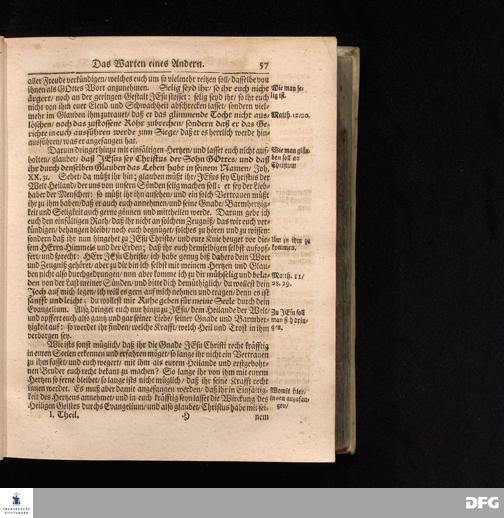 Das Warten eines Andern. 57
aller Freude verkündigen/ welches euch um so vielmehr reitzen soll/ dasselbe von
ihnen als GOttes Wort anzunehmen. Selig seyd ihr/ so ihr euch nicht
ärgert/ noch an der geringen Gestalt JEsu stosset: selig seyd ihr/ so ihr euch
nicht von ihm euer Elend und Schwachheit abschrecken lasset/ sondern viel-
mehr im Glauben ihm zutrauet/ daß er das glimmende Tocht nicht aus-
löschen/ noch das zustossene Rohr zubrechen/ sondern daß er das Ge-
richte in euch ausführen werde zum Siege/ daß er es herrlich werde hin-
ausführen/ was er angefangen hat.
Wie man se-
lig ist.
Matth. 12/20.
Darum dringet hinzu mit einfältigen Hertzen/ und lasset euch nicht auf-
halten/ glaubet/ daß JEsus sey Christus der Sohn GOttes/ und daß
ihr durch denselben Glauben das Leben habt in seinem Namen/ Joh.
XX, 31. Sehet/ da müßt ihr hin; glauben müßt ihr/ JEsus sey Christus der
Welt Heiland/ der uns von unsern Sünden selig machen soll: er sey der Lieb-
haber der Menschen: so müßt ihr ihn ansehen/ und ein solch Vertrauen müßt
ihr zu ihm haben/ daß er auch euch annehmen/ und seine Gnade/ Barmhertzig-
keit und Seligkeit auch gerne gönnen und mittheilen werde. Darum gebe ich
euch den einfältigen Rath/ daß ihr nicht an solchem Zeugniß/ das wir euch ver-
kündigen/ behangen bleibt/ noch euch begnüget/ solches zu hören und zu wissen:
sondern daß ihr nun hingehet zu JEsu Christo/ und eure Knie beuget vor die-
sem HErrn Himmels und der Erden; daß ihr euch demselbigen selbst aufopf-
fert/ und sprecht: HErr JEsu Christe/ ich habe genug biß dahero dein Wort
und Zeugniß gehöret/ aber zu dir bin ich selbst mit meinem Hertzen und Glau-
ben nicht also durchgedrungen/ nun aber komme ich zu dir mühselig und bela-
den von der Last meiner Sünden/ und bitte dich demüthiglich/ du wollest dein
Joch auf mich legen/ ich will es gern auf mich nehmen und tragen/ denn es ist
sanfft und leicht; du wollest mir Ruhe geben für meine Seele durch dein
Evangelium. Also dringet euch nur hinzu/ zu JEsu/ dem Heilande der Welt/
und opffert euch also gantz und gar seiner Liebe/ seiner Gnade und Barmher-
tzigkeit auf: so werdet ihr finden/ welche Krafft/ welch Heil und Trost in ihm
verborgen sey.
Wie man gläu-
ben soll an
Christum
Um zu ihm zu
kommen.
Matth. 11/
28. 29.
Zu JEsu soll
man sich drin-
gen.
Wie ists sonst müglich/ daß ihr die Gnade JEsu Christi recht kräfftig
in euren Seelen erkennen und erfahren möget/ so lange ihr nicht ein Vertrauen
zu ihm fasset/ und euch weget/ mit ihm als eurem Heilande und erstgebohr-
nen Bruder euch recht bekant zu machen? So lange ihr von ihm mit eurem
Hertzen so ferne bleibet/ so lange ists nicht müglich/ daß ihr seine Krafft recht
innen werdet. Es muß aber damit angefangen werden/ daß ihr in Einfältig-
keit des Hertzens annehmet/ und in euch kräfftig seyn lasset die Wirckung des
Heiligen Geistes durchs Evangelium/ und also glaubet/ Christus habe mit sei-
Womit hier-
innen anzufan-
gen/
I. Theil. H nem
FRANCKESCHE STIFTUNGEN
DFG